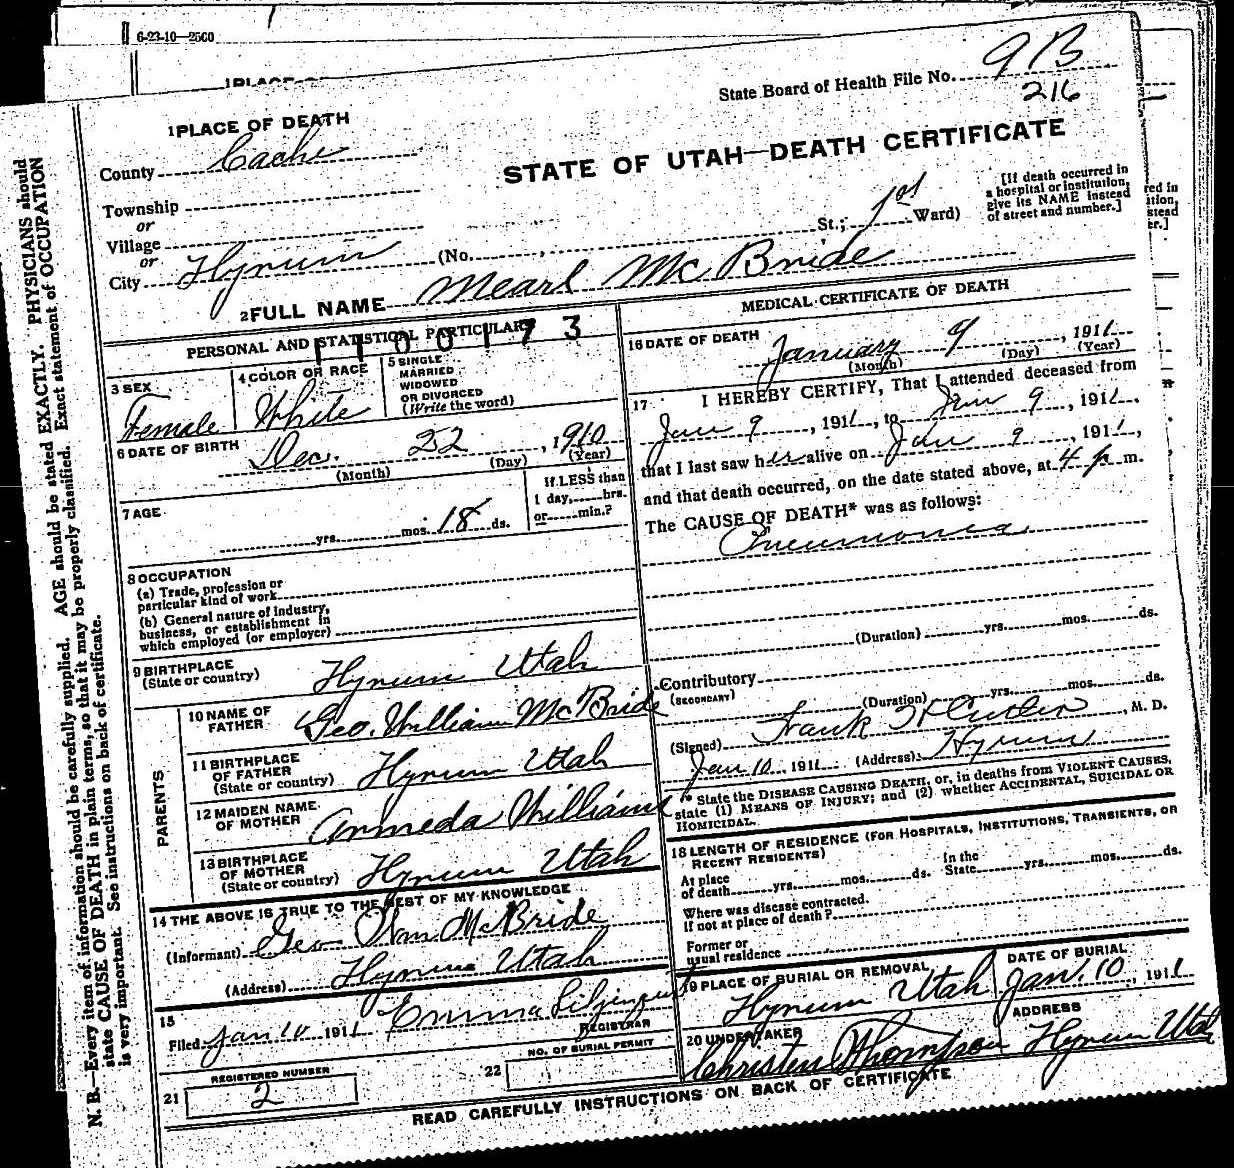 6-23-10—2500
1 PLACE OF
State Board of Health File No. 9 B
216
1 PLACE OF DEATH
County Cache
STATE OF UTAH—DEATH CERTIFICATE
Township
or
Village
or
City Hyrum (No. , St.; 1st Ward)
[If death occurred in
a hospital or institution,
give its NAME instead
of street and number.]
2 FULL NAME Mearl McBride
PERSONAL AND STATISTICAL PARTICULARS
1100173
3 SEX
Female
4 COLOR OR RACE
White
5 SINGLE
MARRIED
WIDOWED
OR DIVORCED
(Write the word)
6 DATE OF BIRTH
Dec. 22, 1910
(Month) (Day) (Year)
7 AGE
yrs. mos. 18 ds.
If LESS than
1 day, hrs.
or min.?
8 OCCUPATION
(a) Trade, profession or
particular kind of work
(b) General nature of industry,
business, or establishment in
which employed (or employer)
9 BIRTHPLACE
(State or country) Hyrum Utah
PARENTS
10 NAME OF
FATHER Geo. William McBride
11 BIRTHPLACE
OF FATHER
(State or country) Hyrum Utah
12 MAIDEN NAME
OF MOTHER Armeda Williams
13 BIRTHPLACE
OF MOTHER
(State or country) Hyrum Utah
14 THE ABOVE IS TRUE TO THE BEST OF MY KNOWLEDGE
(Informant) Geo Wm McBride
(Address) Hyrum Utah
15
Filed Jan 10 1911 Emma
REGISTRAR
21 REGISTERED NUMBER
2
22 NO. OF BURIAL PERMIT
MEDICAL CERTIFICATE OF DEATH
16 DATE OF DEATH
January 9, 1911
(Month) (Day) (Year)
17 I HEREBY CERTIFY, That I attended deceased from
Jan 9, 1911, to Jan 9, 1911.
that I last saw her alive on Jan 9, 1911,
and that death occurred, on the date stated above, at 4 p m.
The CAUSE OF DEATH* was as follows:
Pneumonia
(Duration) yrs. mos. ds.
Contributory
(SECONDARY)
(Duration) yrs. mos. ds.
(Signed) Frank , M. D.
Jan 10 1911 (Address) Hyrum
* State the DISEASE CAUSING DEATH, or, in deaths from VIOLENT CAUSES,
state (1) MEANS OF INJURY; and (2) whether ACCIDENTAL, SUICIDAL OR
HOMICIDAL.
18 LENGTH OF RESIDENCE (FOR HOSPITALS, INSTITUTIONS, TRANSIENTS, OR
RECENT RESIDENTS)
At place
of death yrs. mos. ds.
In the
State yrs. mos. ds.
Where was disease contracted.
If not at place of death?
Former or
usual residence
19 PLACE OF BURIAL OR REMOVAL
Hyrum Utah
DATE OF BURIAL
Jan. 10, 1911
20 UNDERTAKER
Christen Thompson
ADDRESS
Hyrum Utah
READ CAREFULLY INSTRUCTIONS ON BACK OF CERTIFICATE
N. B.—Every item of information should be carefully supplied. AGE should be stated EXACTLY. PHYSICIANS should
state CAUSE OF DEATH in plain terms, so that it may be properly classified. Exact statement of OCCUPATION
is very important. See instructions on back of certificate.